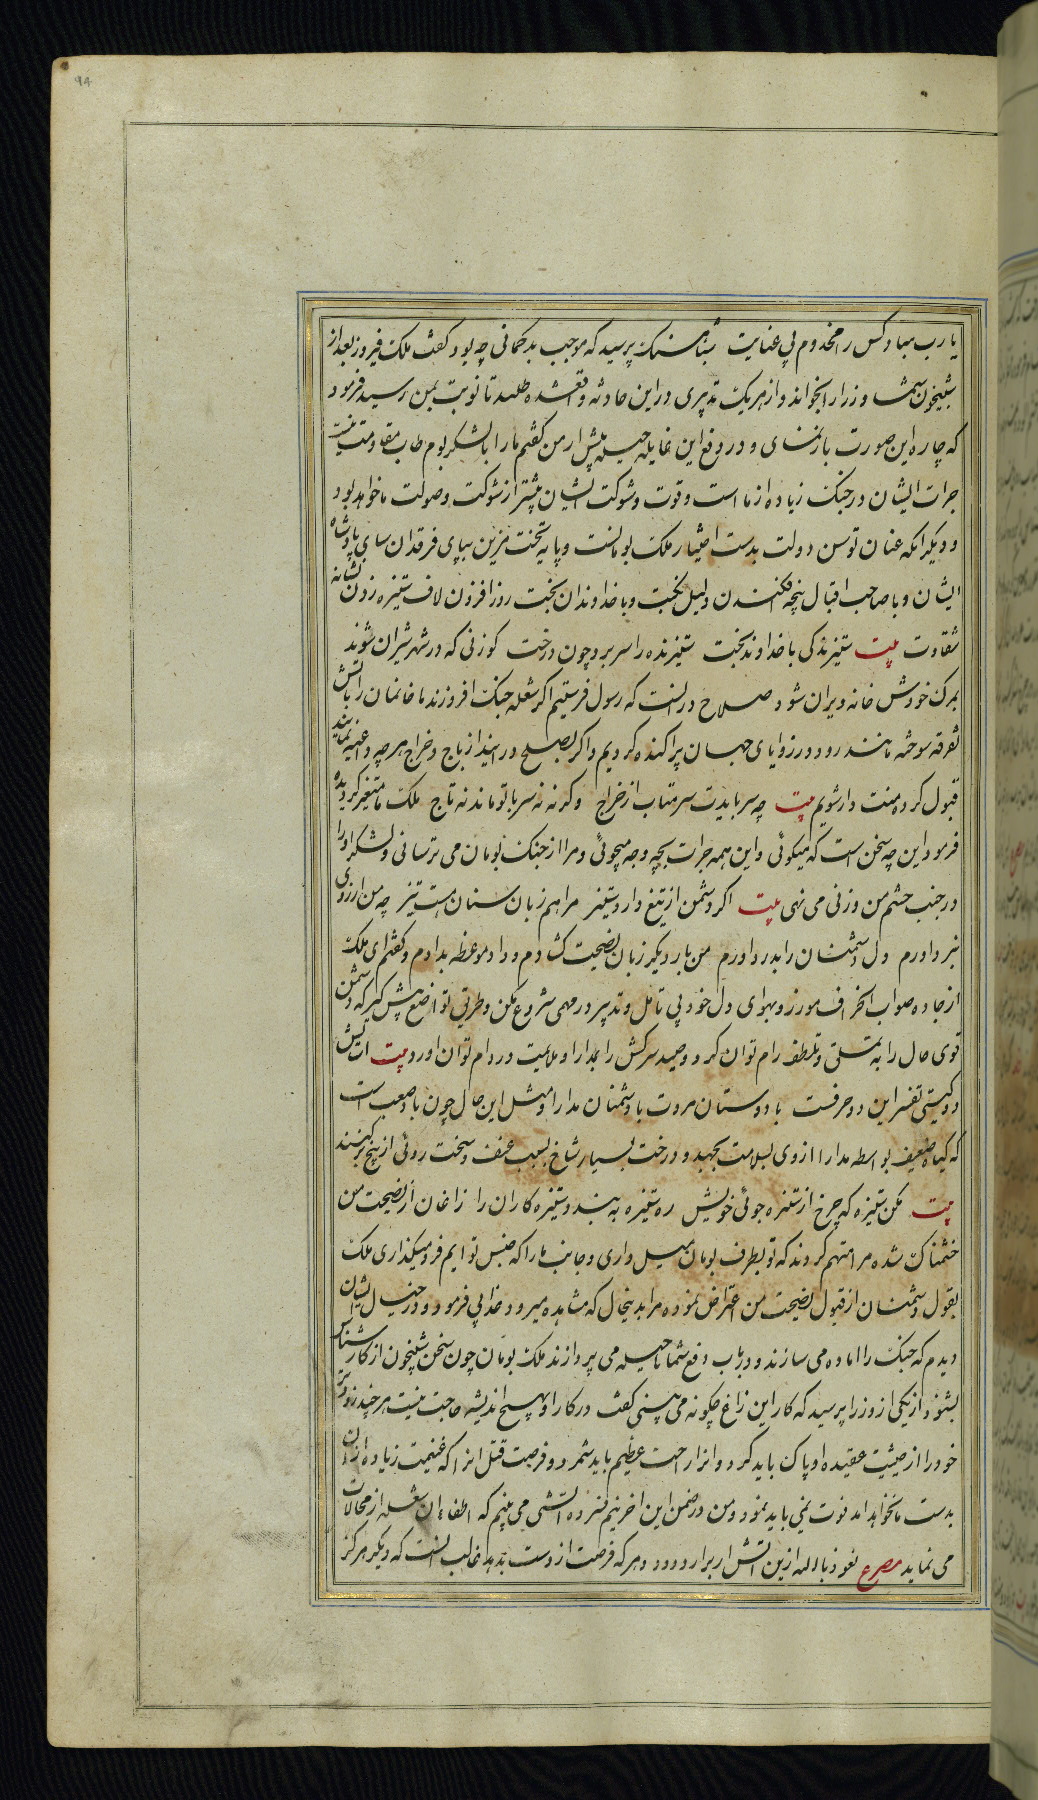 یا رب مبادکس را مخدوم بی عنایت شباهنک پرسید که موجب بدکمانی چه بود کفت ملک فیروز بعد از
شبیخون شما وزرا را بخواند و از هریک تدبیری در این حادثه واقع شده طلبید تا نوبت بمن رسید فرمود
که چاره این صورت باز نمای و در دفع این غایله حیله پیش ار من کفتم ما را با لشکر بوم طاب مقاومت نیست
جرات ایشان در جنک زیاده از ما است و قوت و شوکت ایشان پیشتر از شوکت و صولت ما خواهد بود
و دیکر انکه عنان توسن دولت بدست اختیار ملک بومانست و پایه تخت مزین بپای فرقدان سای پادشاه
ایشان و با صاحب اقبال پنجه فکندن دلیل نکبت و با خداوندان بخت روز افزون لاف ستیزه زدن نشانه
شقاوت بیت ستیزندکی با خداوند بخت ستیزنده را سر برد چون درخت کوزنی که در شهر شیران شود
بمرک خودش خانه ویران شود صلاح در انست که رسول فرستیم اکر شعله جنک افروزند ما خانمان را باتش
تفرقه سوخته مانند رود در زوایای جهان پراکنده کردیم و اکر بصلح در ایند از باج و خراج هرچه داعیه نمایند
قبول کرده منت دار شویم بیت چه سر بایدت سر متاب از خراج وکرنه نه سر با تو ماند نه تاج ملک ما متغیر کردیده
فرمود این چه سخن است که میکوئی و این همه جرات بچه وجه میجوئی و مرا از جنک بومان می ترسانی و لشکر او را
در جنب حشم من وزنی می نهی بیت اکر دشمن از تیغ دارد ستیز مرا هم زبان سنان هست تیز چه من ارزوی
نبرد اورم دل دشمنان را بدرد اورم من بار دیکر زبان نصیحت کشادم و داد موعظه بدادم و کفتم ای ملک
از جاده صواب انحراف مورز و بهوای دل خود بی تامل و تدبیر در مهمی شروع مکن و طریق تواضع پیش کیر که دشمن
قوی حال را به تملق و تلطف رام توان کرد و صید سرکش را بمدارا و ملایمت در دام توان اورد بیت اسایش
دو کیتی تفسیر این دو حرفست با دوستان مروت با دشمنان مدارا و مثل این حال چون باد صعب است
که کیاه ضعیف بواسطه مدارا از وی بسلامت بجهد و درخت بسیار شاخ بسبب عنف و سخت روئی از بیخ برکنند
بیت مکن ستیزه که چرخ از ستیزه جوئی خویش ره ستیزه ببندد ستیزه کاران را زاغان از نصیحت من
خشمناک شده مرا متهم کردند که تو بطرف بومان میل داری و جانب ما را که جنس تو ایم فرو میکذاری ملک
بقول دشمنان از قبول نصیحت من اعتراض نموده مرا بدینحال که مشاهده میرود عذابی فرمود و در خیال ایشان
دیدم که جنک را اماده می سازند و در باب دفع شما تا حیله می پردازند ملک بومان چون سخن شبیخون از کارشناس
بشنود از یکی از وزرا پرسید که کار این زاغ چکونه می بینی کفت در کار او بهیچ اندیشه حاجت نیست هر چند زودتر
خود را از خبثیت عقیده او پاک باید کرد و انرا راحت عظیم باید شمرد و فرصت قتل انرا که غنیمت زیاده از ان
بدست ما نخواهد امد فوت نمی باید نمود و من در ضمن این اخر ینم فسرده اتشی می بینم که اطفاء ان بشعله از محالات
می نماید مصرع نعوذ بالله ازین اتش ار برارد دود و هر که فرصت از دست بدهد غالب انست که دیکر هرکز